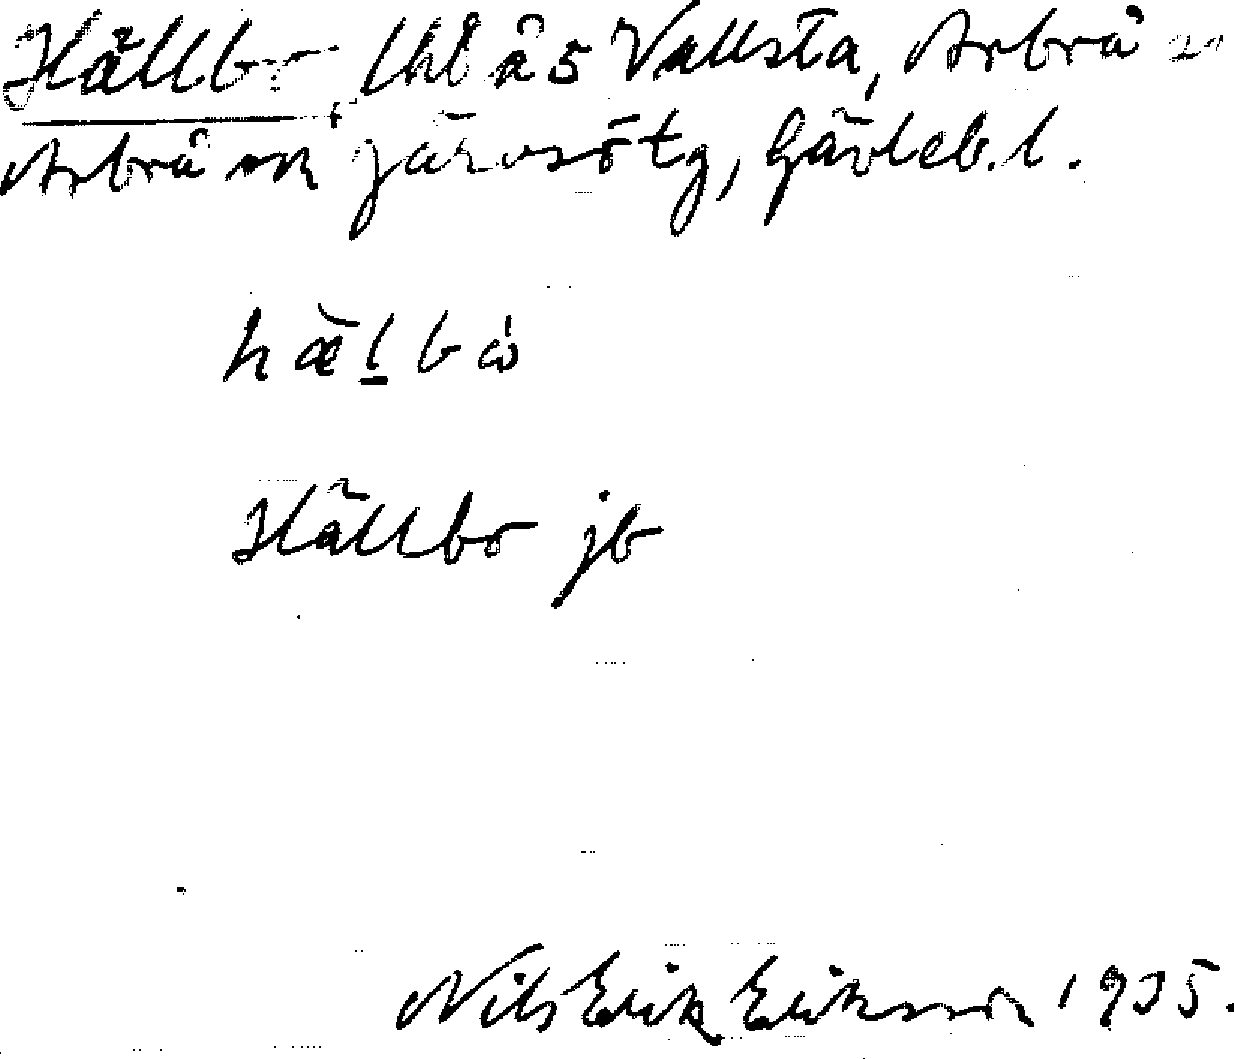 Hällbo, lht å 5 Vallsta, Arbrå sn
Arbrå och Järvsö tg, Gävleb. l.
Hällbo jb
Nils Erik Eriksson 1935.